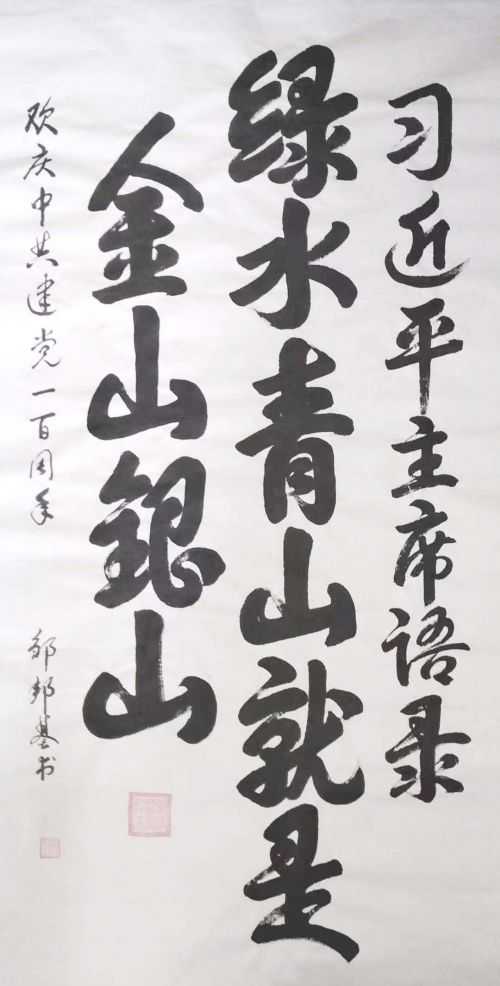 习近平主席语录
绿水青山就是
金山银山
欢庆中共建党一百周年
邹邦基书